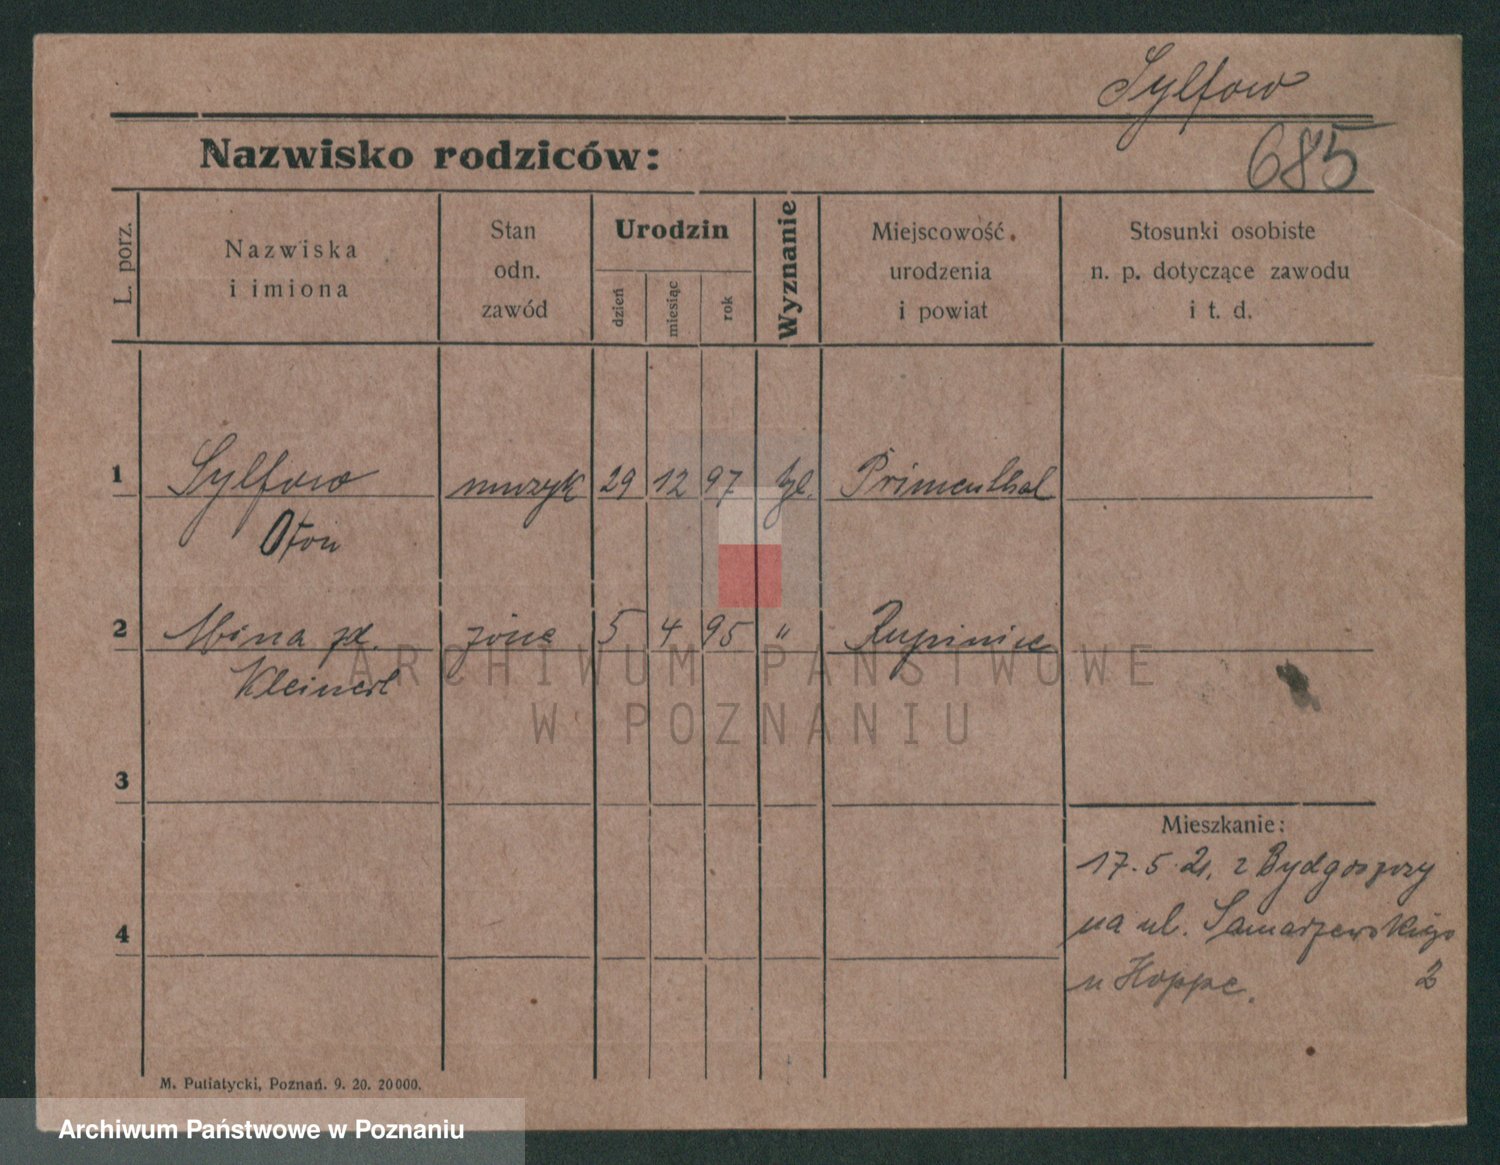 Sylfow
685
Nazwisko rodziców:
L. porz.
Nazwiska
i imiona
Stan
odn.
zawód
Urodzin
dzień
miesiąc
rok
Wyznanie
Miejscowość
urodzenia
i powiat
Stosunki osobiste
n. p. dotyczące zawodu
i t. d.
1 Sylfow muzyk 29 12 97 Primenthal
Oton
2 Mina zd. żona 5 4 95 " Rupiniec
Kleinert
ARCHIWUM PAŃSTWOWE
W POZNANIU
3
Mieszkanie:
17.5.21. z Bydgoszczy
4
na ul. Samarzewskiego
u Hoppe. 2
M. Putiatycki, Poznań. 9. 20. 20000.
Archiwum Państwowe w Poznaniu